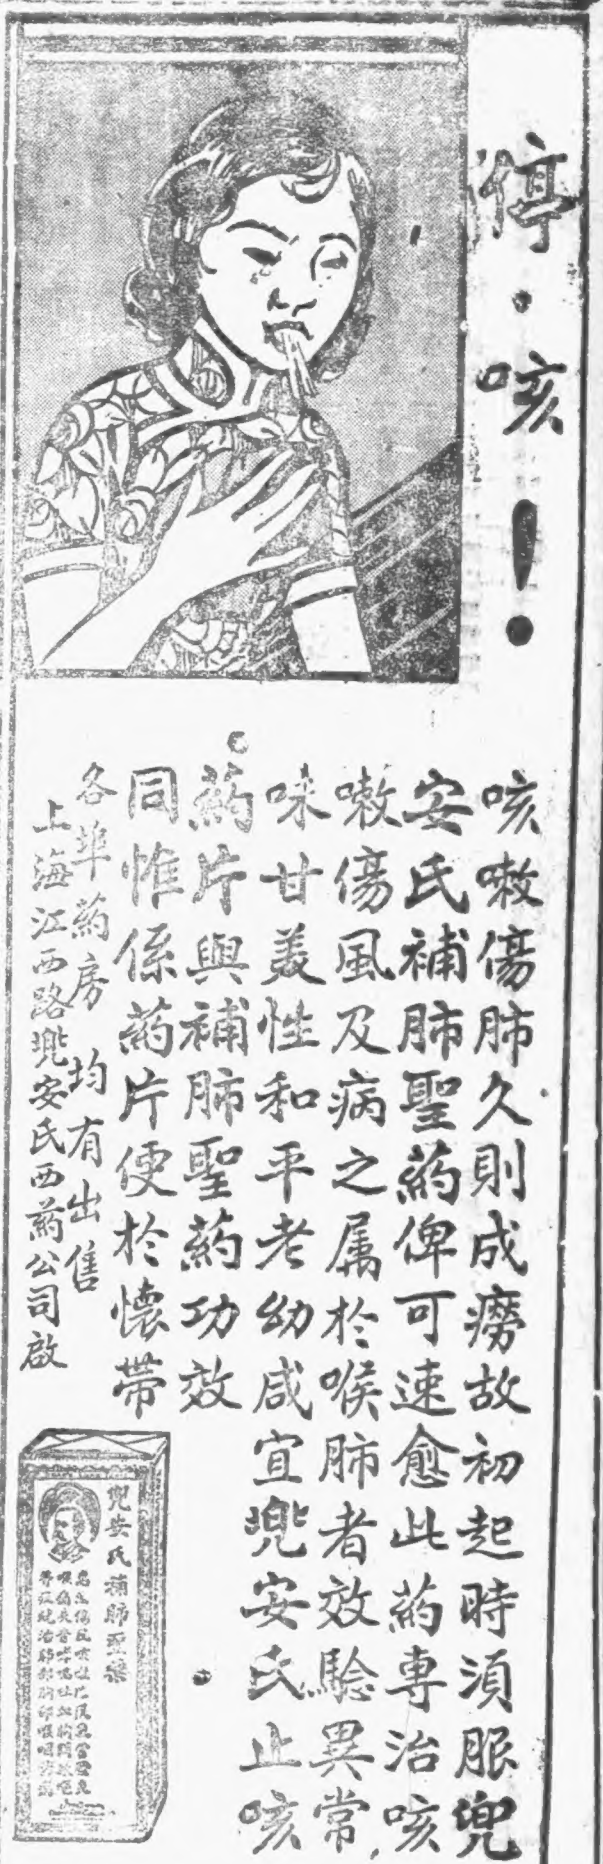 停·咳！
咳嗽傷肺久則成癆故初起時須服兜
安氏補肺聖藥俾可速愈此藥專治咳
嗽傷風及病之属於喉肺者效驗異常
味甘美性和平老幼咸宜兜安氏止咳
藥片與補肺聖藥功效
同惟係藥片便於懷帶
各埠藥房均有出售
上海江西路兜安氏西藥公司啟
兜安氏補肺聖藥